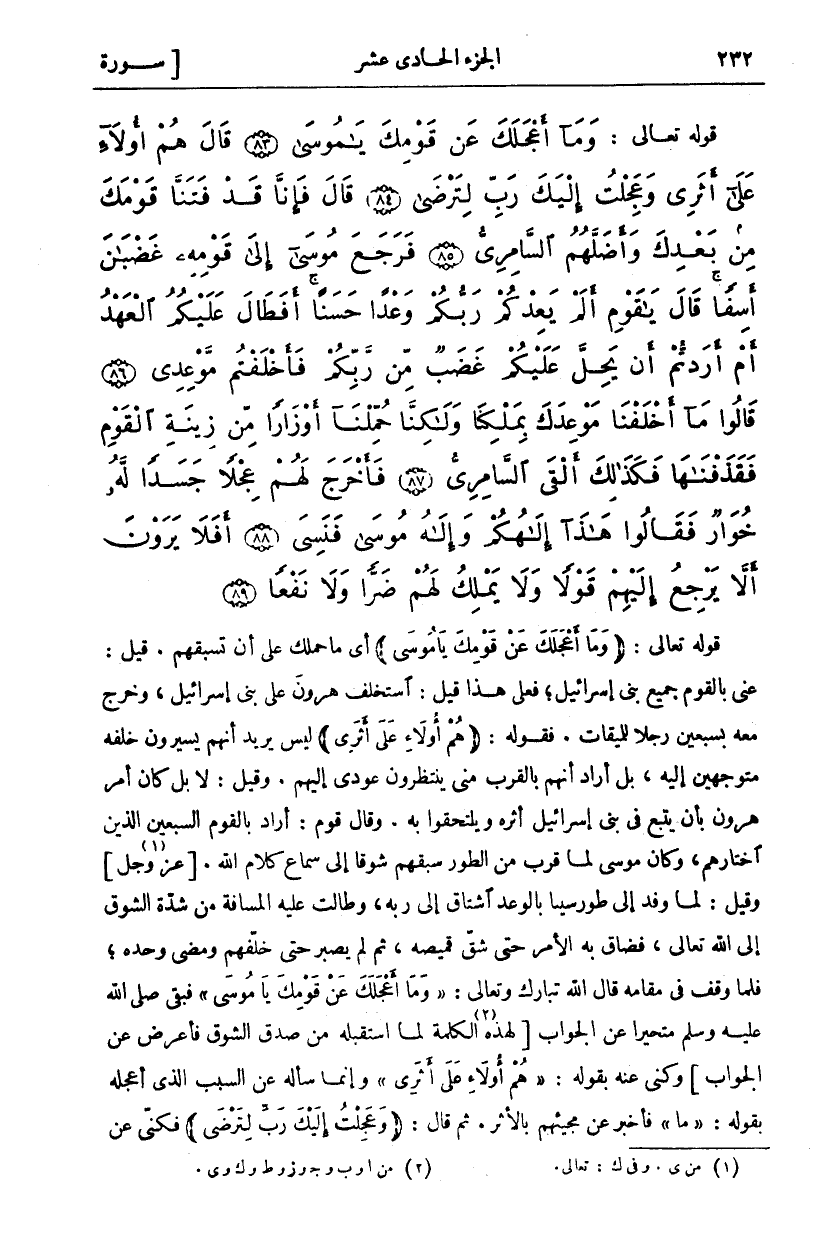 ٢٣٢ الجزء الحادى عشر [ سورة
قوله تعالى : وَمَآ أَعْجَلَكَ عَن قَوْمِكَ يَـٰمُوسَىٰ ﴿٨٣﴾ قَالَ هُمْ أُولَآءِ
عَلَىٰٓ أَثَرِى وَعَجِلْتُ إِلَيْكَ رَبِّ لِتَرْضَىٰ ﴿٨٤﴾ قَالَ فَإِنَّا قَدْ فَتَنَّا قَوْمَكَ
مِنۢ بَعْدِكَ وَأَضَلَّهُمُ ٱلسَّامِرِىُّ ﴿٨٥﴾ فَرَجَعَ مُوسَىٰٓ إِلَىٰ قَوْمِهِۦ غَضْبَـٰنَ
أَسِفًاۚ قَالَ يَـٰقَوْمِ أَلَمْ يَعِدْكُمْ رَبُّكُمْ وَعْدًا حَسَنًاۚ أَفَطَالَ عَلَيْكُمُ ٱلْعَهْدُ
أَمْ أَرَدتُّمْ أَن يَحِلَّ عَلَيْكُمْ غَضَبٌ مِّن رَّبِّكُمْ فَأَخْلَفْتُم مَّوْعِدِى ﴿٨٦﴾
قَالُوا مَآ أَخْلَفْنَا مَوْعِدَكَ بِمَلْكِنَا وَلَـٰكِنَّا حُمِّلْنَآ أَوْزَارًا مِّن زِينَةِ ٱلْقَوْمِ
فَقَذَفْنَـٰهَا فَكَذَٰلِكَ أَلْقَى ٱلسَّامِرِىُّ ﴿٨٧﴾ فَأَخْرَجَ لَهُمْ عِجْلًا جَسَدًا لَّهُۥ
خُوَارٌ فَقَالُوا هَـٰذَآ إِلَـٰهُكُمْ وَإِلَـٰهُ مُوسَىٰ فَنَسِىَ ﴿٨٨﴾ أَفَلَا يَرَوْنَ
أَلَّا يَرْجِعُ إِلَيْهِمْ قَوْلًا وَلَا يَمْلِكُ لَهُمْ ضَرًّا وَلَا نَفْعًا ﴿٨٩﴾
قوله تعالى : ﴿ وَمَا أَعْجَلَكَ عَنْ قَوْمِكَ يَامُوسَى ﴾ أى ماحملك على أن تسبقهم . قيل :
عنى بالقوم جميع بنى إسرائيل؛ فعلى هذا قيل : ٱستخلف هرونَ على بنى إسرائيل ، وخرج
معه بسبعين رجلا للميقات . فقوله : ﴿ هُمْ أُولَاءِ عَلَى أَثَرِى ﴾ ليس يريد أنهم يسيرون خلفه
متوجهين إليه ، بل أراد أنهم بالقرب منى ينتظرون عودى إليهم . وقيل : لا بل كان أمر
هرون بأن يتبع فى بنى إسرائيل أثره ويلتحقوا به . وقال قوم : أراد بالقوم السبعين الذين
ٱختارهم، وكان موسى لما قرب من الطور سبقهم شوقا إلى سماع كلام الله . [ عز وجل ](١)
وقيل : لما وفد إلى طورسينا بالوعد ٱشتاق إلى ربه ، وطالت عليه المسافة من شدّة الشوق
إلى الله تعالى ، فضاق به الأمر حتى شقّ قميصه ، ثم لم يصبر حتى خلّفهم ومضى وحده ؛
فلما وقف فى مقامه قال الله تبارك وتعالى : « وَمَا أَعْجَلَكَ عَنْ قَوْمِكَ يَا مُوسَى » فبقى صلى الله
عليه وسلم متحيرا عن الجواب [ لهذه(٢) الكلمة لما استقبله من صدق الشوق فأعرض عن
الجواب ] وكنى عنه بقوله : « هُمْ أُولَاءِ عَلَى أَثَرِى » وإنما سأله عن السبب الذى أعجله
بقوله : « ما » فأخبر عن مجيئهم بالأثر . ثم قال : ﴿ وَعَجِلْتُ إِلَيْكَ رَبِّ لِتَرْضَى ﴾ فكنّى عن
(١) من ى . وفى ك : تعالى . (٢) من ا و ب و ج و ز و ط و ك و ى .